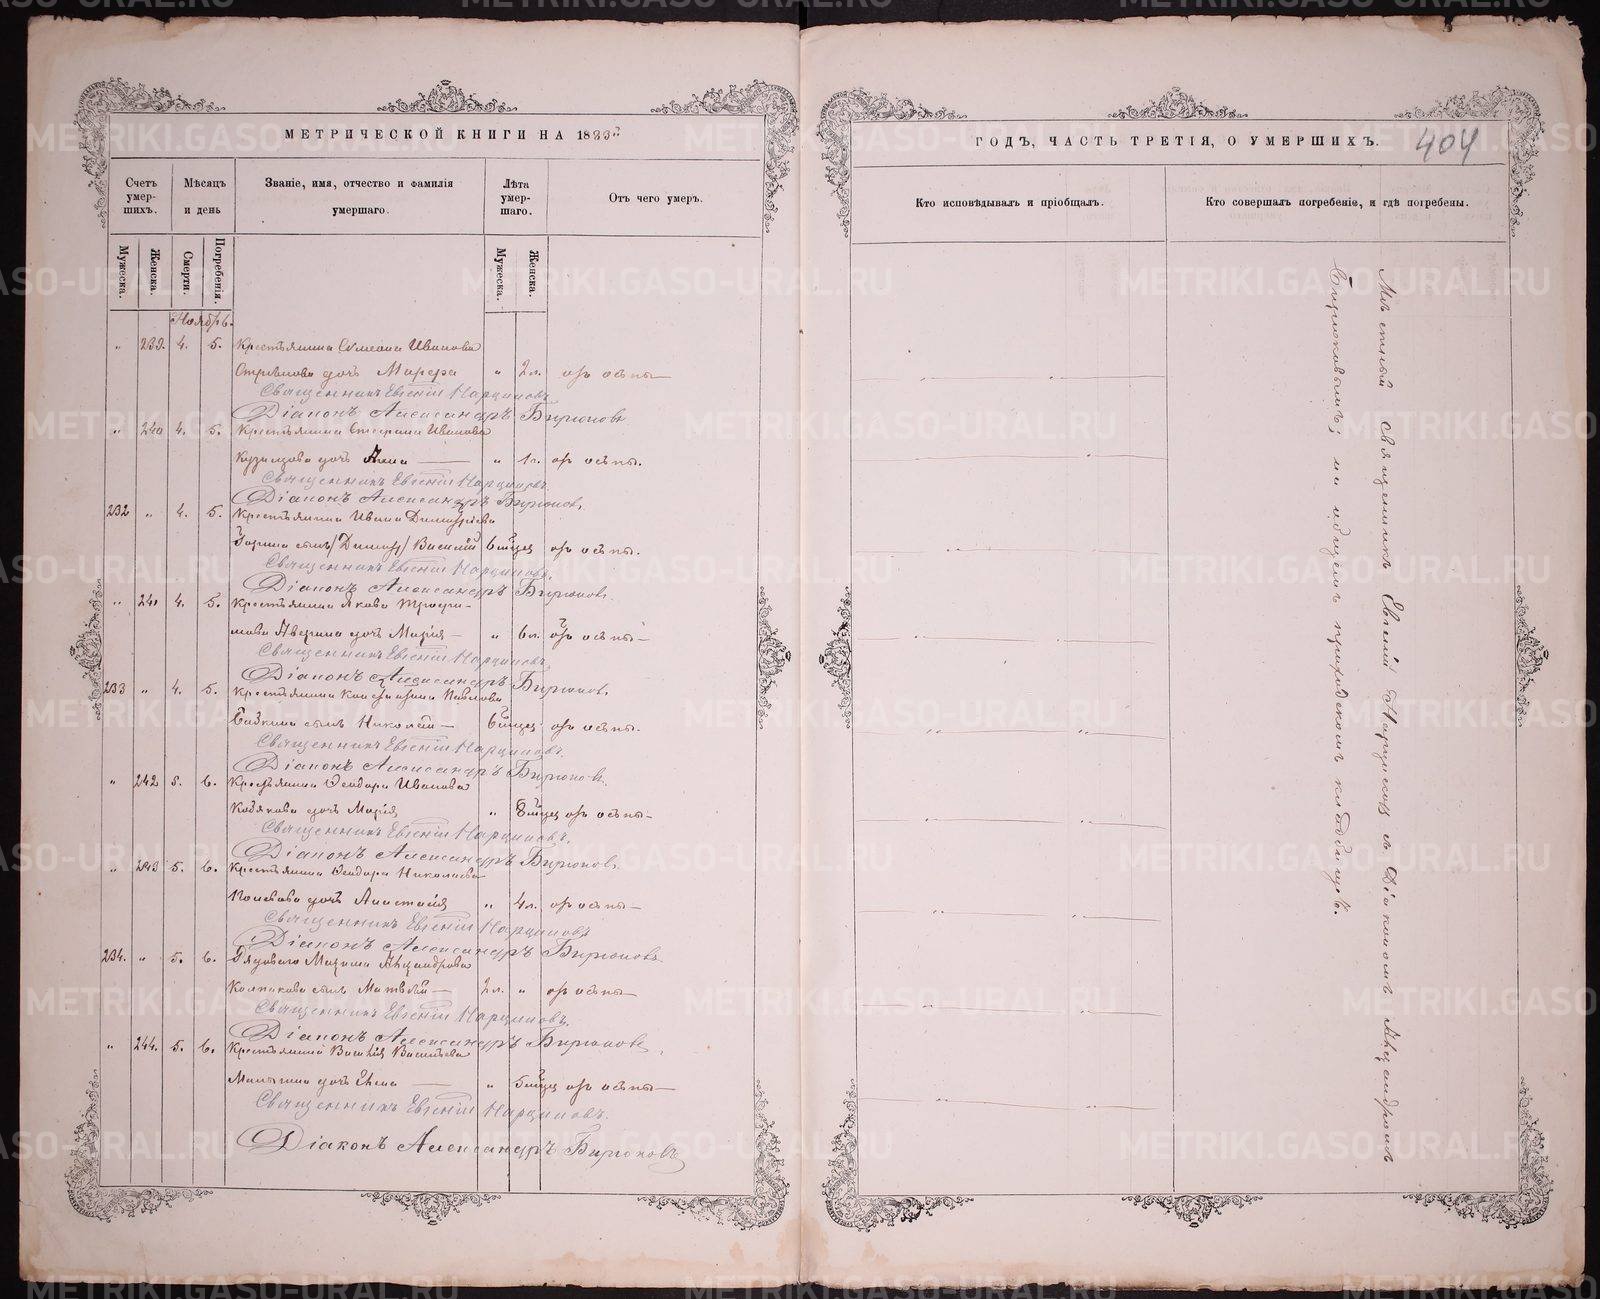 МЕТРИЧЕСКОЙ КНИГИ НА 1883й
ГОДЪ, ЧАСТЬ ТРЕТІЯ, О УМЕРШИХЪ.
404
Счетъ умер-шихъ.
Мѣсяцъ и день
Званіе, имя, отчество и фамилія умершаго.
Лѣта умер-шаго.
Отъ чего умеръ.
Кто исповѣдывалъ и пріобщалъ.
Кто совершалъ погребеніе, и гдѣ погребены.
Мужеска.
Женска.
Смерти.
Погребенія.
Мужеска.
Женска.
Ноябрь.
" 239. 4. 5. Крестьянина Симеона Иванова
дочь Марѳа " 2 л. отъ оспы
Священникъ Евгеній Нарциссовъ
Діаконъ Александръ Бирюковъ
" 240 4. 5. Крестьянина Стефана Иванова
Кузнецова дочь Анна " 1 г. отъ оспы.
Священникъ Евгеній Нарциссовъ
Діаконъ Александръ Бирюковъ
232 " 4. 5. Крестьянина Ивана Димитріева
сынъ Василій 6 мѣсяц отъ оспы.
Священникъ Евгеній Нарциссовъ
Діаконъ Александръ Бирюковъ
" 241 4. 5. Крестьянина Якова Трофи-
мова Аверина дочь Марія " 6 л. отъ оспы
Священникъ Евгеній Нарциссовъ
Діаконъ Александръ Бирюковъ
233 " 4. 5. Крестьянина Константина Павлова
сынъ Николай 6 мѣсяц отъ оспы.
Священникъ Евгеній Нарциссовъ
Діаконъ Александръ Бирюковъ
" 242 5. 6. Крестьянина Ѳеодора Иванова
дочь Марія " 8 мѣсяц отъ оспы
Священникъ Евгеній Нарциссовъ
Діаконъ Александръ Бирюковъ
" 243 5. 6. Крестьянина Ѳеодора Николаева
дочь Анастасія " 4 л. отъ оспы
Священникъ Евгеній Нарциссовъ
Діаконъ Александръ Бирюковъ
234. " 5. 6. Рядоваго Максима Александрова
Колпакова сынъ Матвѣй 2 л. " отъ оспы
Священникъ Евгеній Нарциссовъ
Діаконъ Александръ Бирюковъ
" 244. 5. 6. Крестьянина Василія Васильева
дочь Анна " 5 мѣсяц отъ оспы
Священникъ Евгеній Нарциссовъ
Діаконъ Александръ Бирюковъ
Мѣстный священникъ Евгеній Нарциссовъ съ Діакономъ Александромъ
Бирюковымъ; на общемъ приходскомъ кладбищѣ.
METRIKI.GASO-URAL.RU